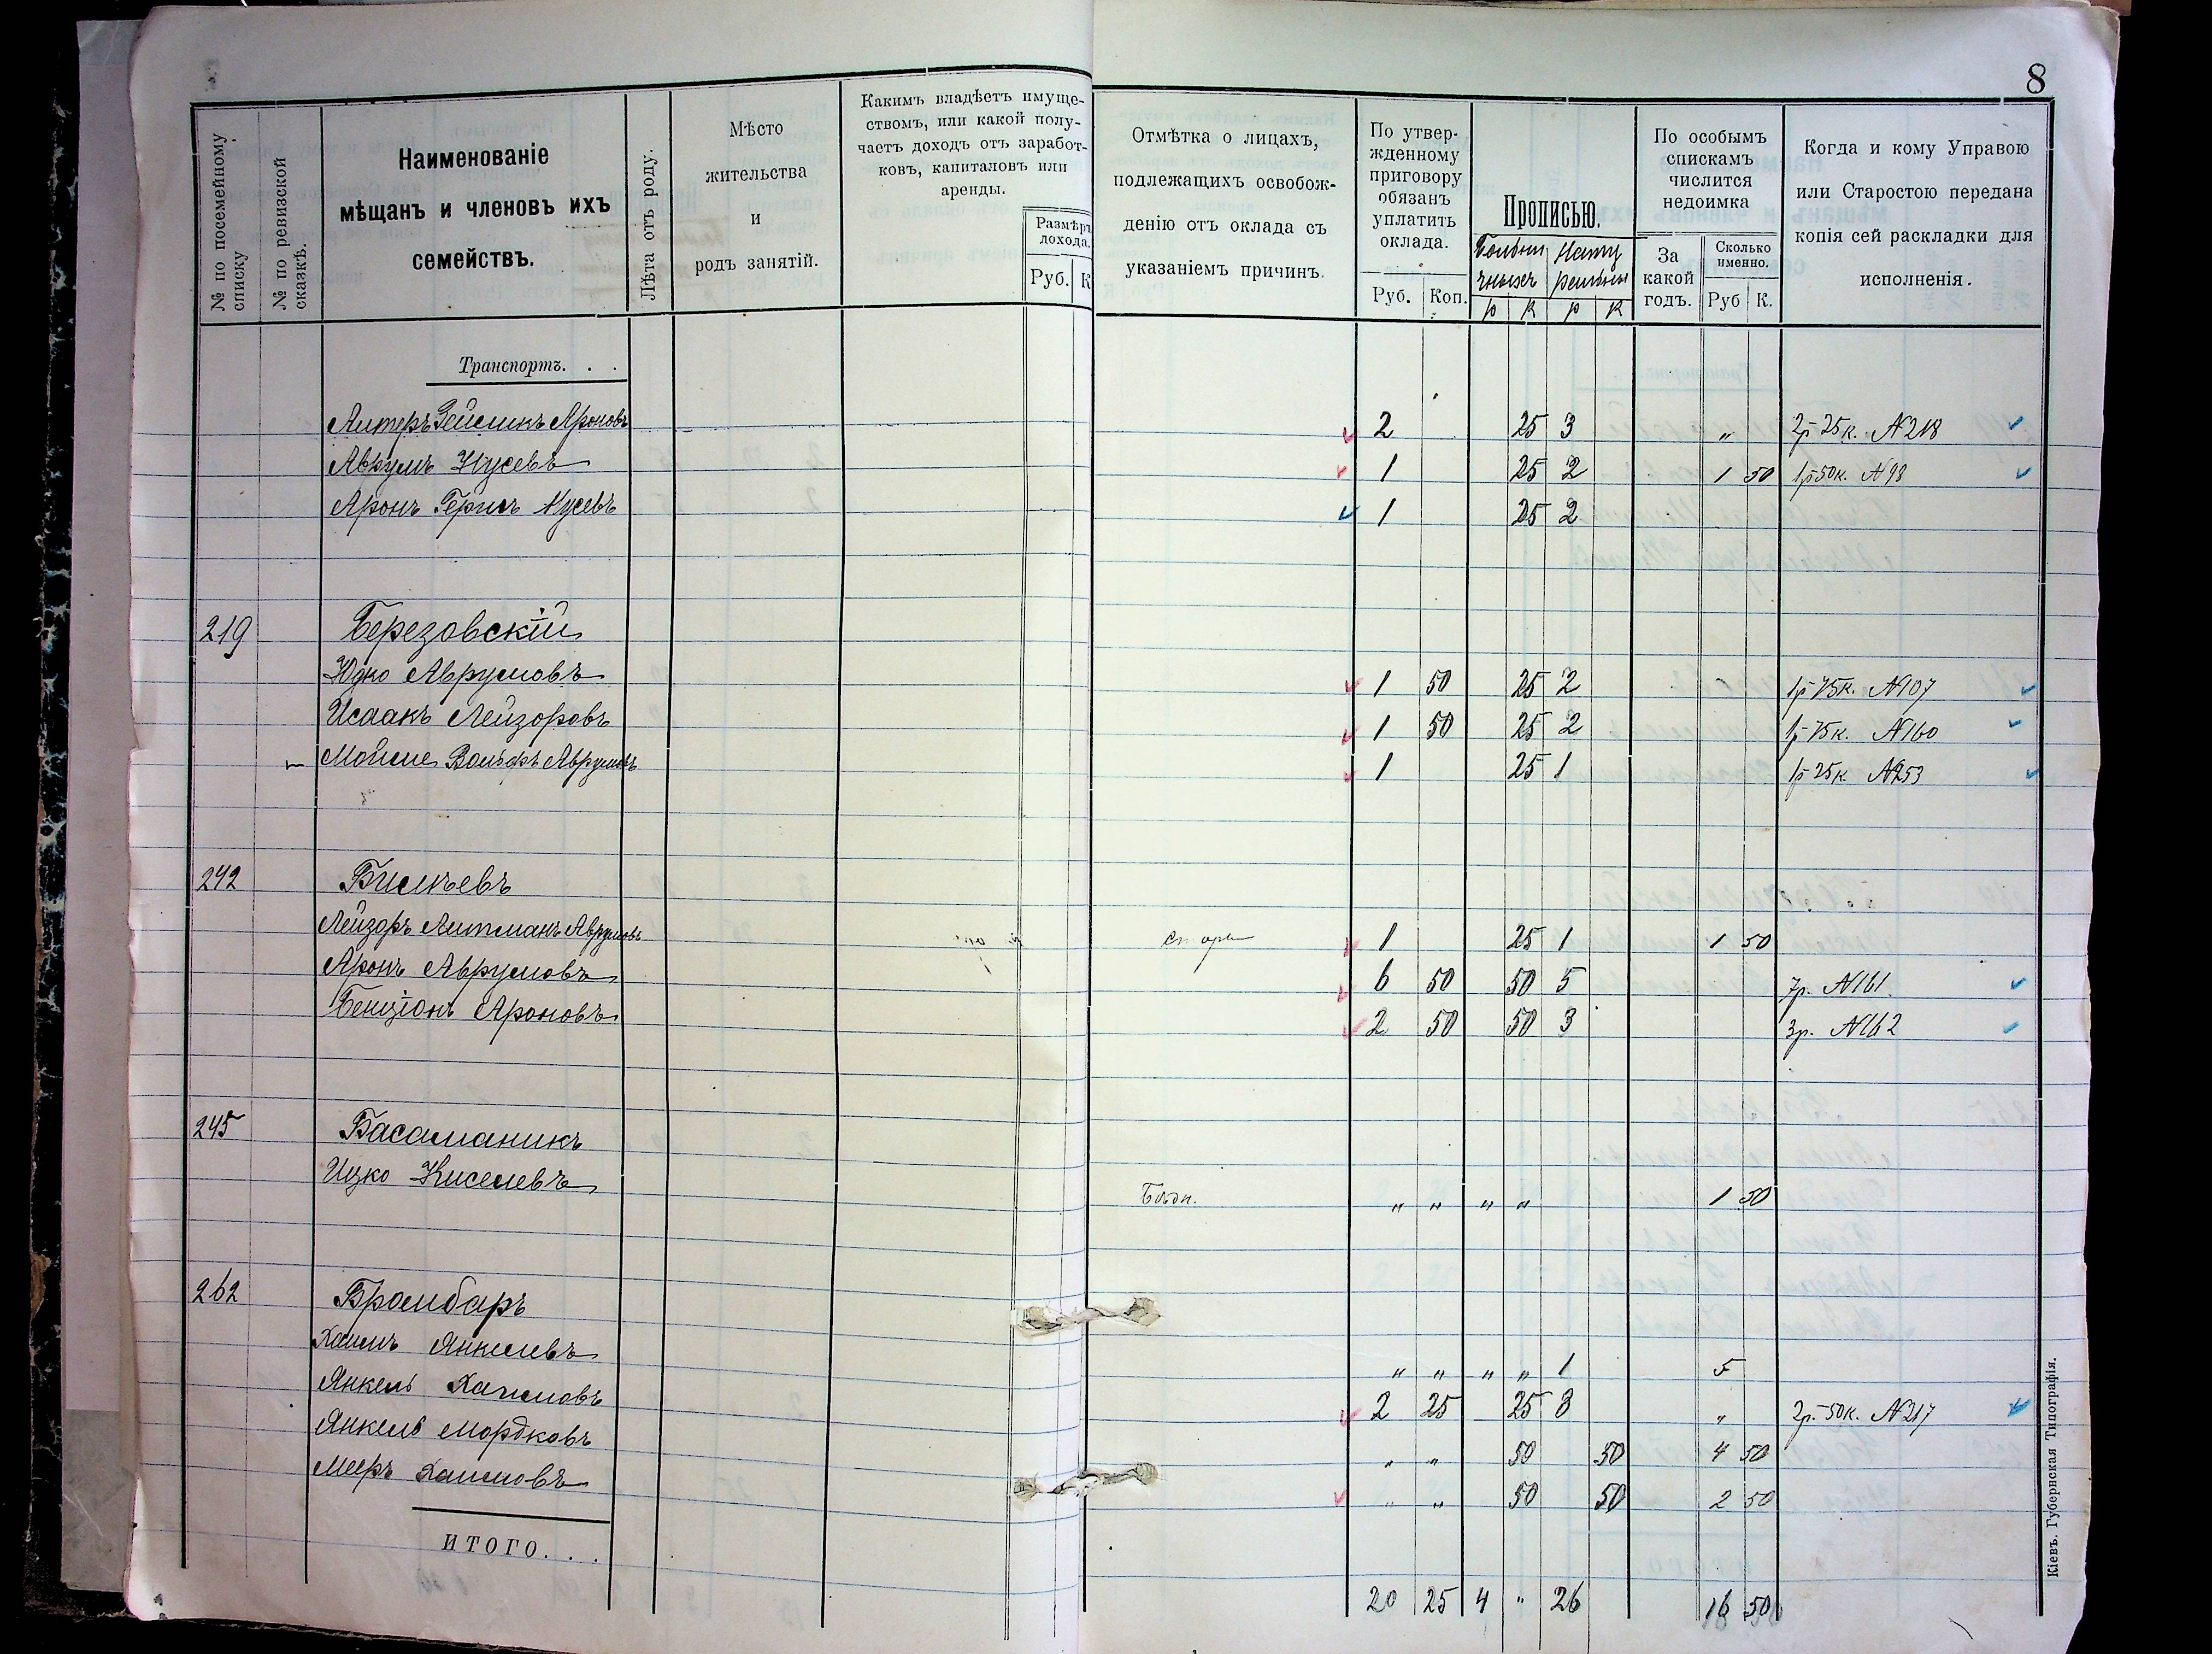 8
№ по посемейному списку
№ по ревизской сказкѣ.
Наименованіе
мѣщанъ и членовъ ихъ
семействъ.
Лѣта отъ роду.
Мѣсто
жительства
и
родъ занятій.
Какимъ владѣетъ имуще-
ствомъ, или какой полу-
чаетъ доходъ отъ заработ-
ковъ, капиталовъ или
аренды.
Размѣръ
дохода.
Руб. К
Отмѣтка о лицахъ,
подлежащихъ освобож-
денію отъ оклада съ
указаніемъ причинъ.
По утвер-
жденному
приговору
обязанъ
уплатить
оклада.
Руб. Коп.
Прописью.
р к р к
По особымъ
спискамъ
числится
недоимка
За
какой
годъ.
Сколько
именно.
Руб К.
Когда и кому Управою
или Старостою передана
копія сей раскладки для
исполненія.
Транспортъ. . .
Алтеръ Зейликъ Ароновъ 2 25 3 " 2р 25к. №218
Аврумъ Нусевъ 1 25 2 1 50 1р 50к. №98
Аронъ Гершъ Нусевъ 1 25 2
219 Березовскій
Юдко Аврумовъ 1 50 25 2 1р 75к. №107
Исаакъ Лейзоровъ 1 50 25 2 1р 75к. №160
Мойше Вольфъ Аврумовъ 1 25 1 1р 25к. №253
242
Лейзоръ Литманъ Аврумовъ старъ 1 25 1 1 50
Аронъ Аврумовъ 6 50 50 5 7р. №161.
Бенціонъ Ароновъ 2 50 50 3 3р. №162
245 Басаманикъ
Ицко Киселевъ Бѣдн. " " " " 1 50
262 Брамбаръ
Хаимъ Янкелевъ " " " " 1 5
Янкель Хаимовъ 2 25 25 3 " 2р. 50к. №217
Янкель Мордковъ " " 50 50 4 50
Мееръ Хаимовъ " " 50 50 2 50
ИТОГО. . .
20 25 4 " 26 16 50
Кіевъ. Губернская Типографія.